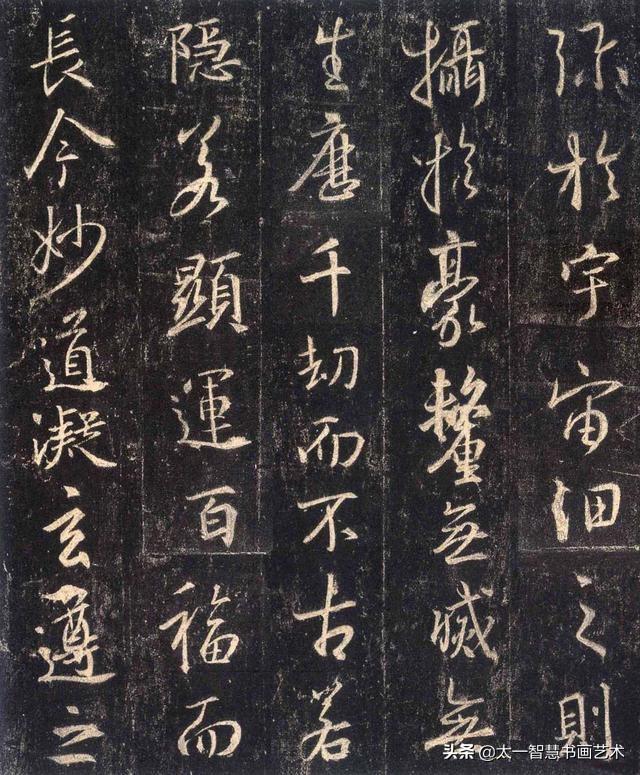 弥於宇宙细之則
攝於豪釐無滅無
生歷千劫而不古若
隱若顯運百福而
長今妙道凝玄遵之
头条@太一智慧书画艺术